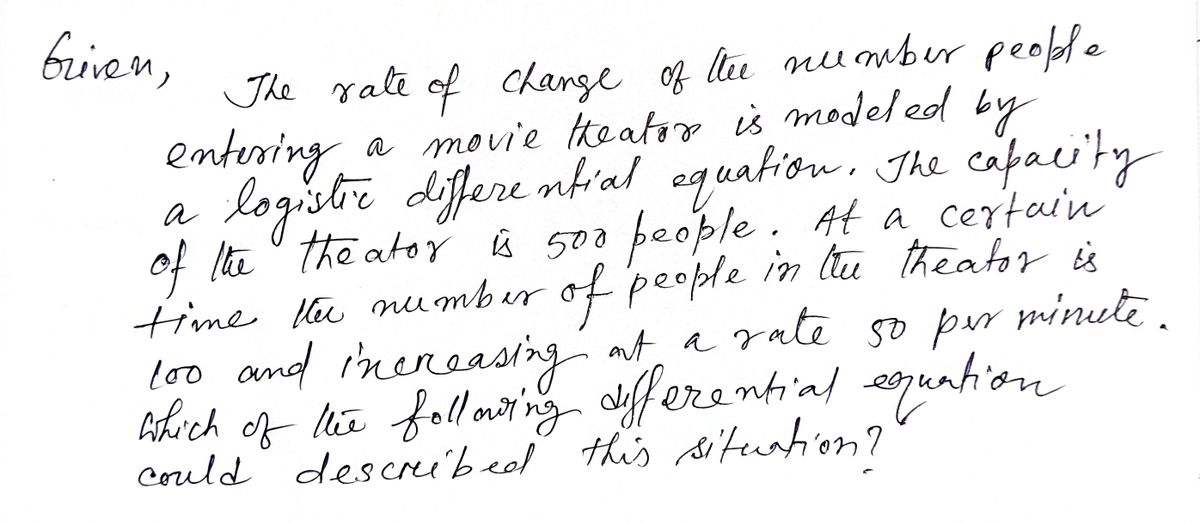 Given,
The rate of change of the number people
entering a movie theator is modeled by
a logistic differential equation. The capacity
of the theator is 500 people. At a certain
time the number of people in the theator is
100 and increasing at a rate 50 per minute.
Which of the following differential equation
could described this situation?